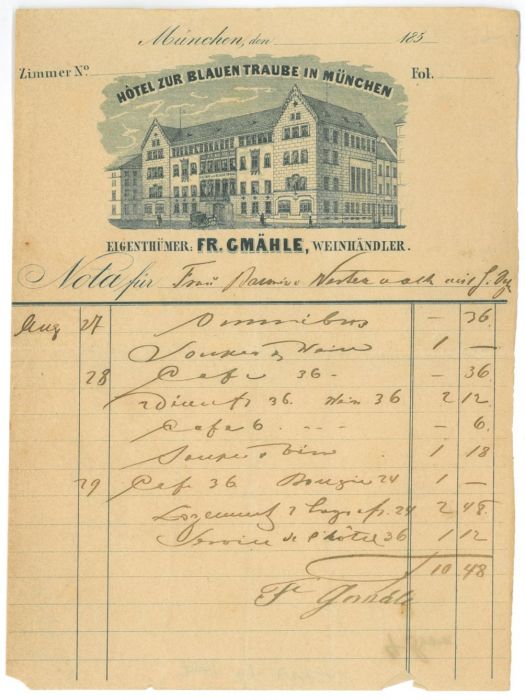 München, den 185
Zimmer No. Fol.
HÔTEL ZUR BLAUEN TRAUBE IN MÜNCHEN
EIGENTHÜMER: FR. GMÄHLE, WEINHÄNDLER.
Nota für Frau
Aug 27 Omnibus — 36.
Souper & Wein 1 —
28 Cafe 36 — — 36
Wein 36 2 12
Cafe 6. — 6.
Souper 1 18
29 Caf. 36 Bougie 24 1 —
Logement 2 24 2 48.
Service de l'hôtel 36 1 12
10 48
Fr Gmähle